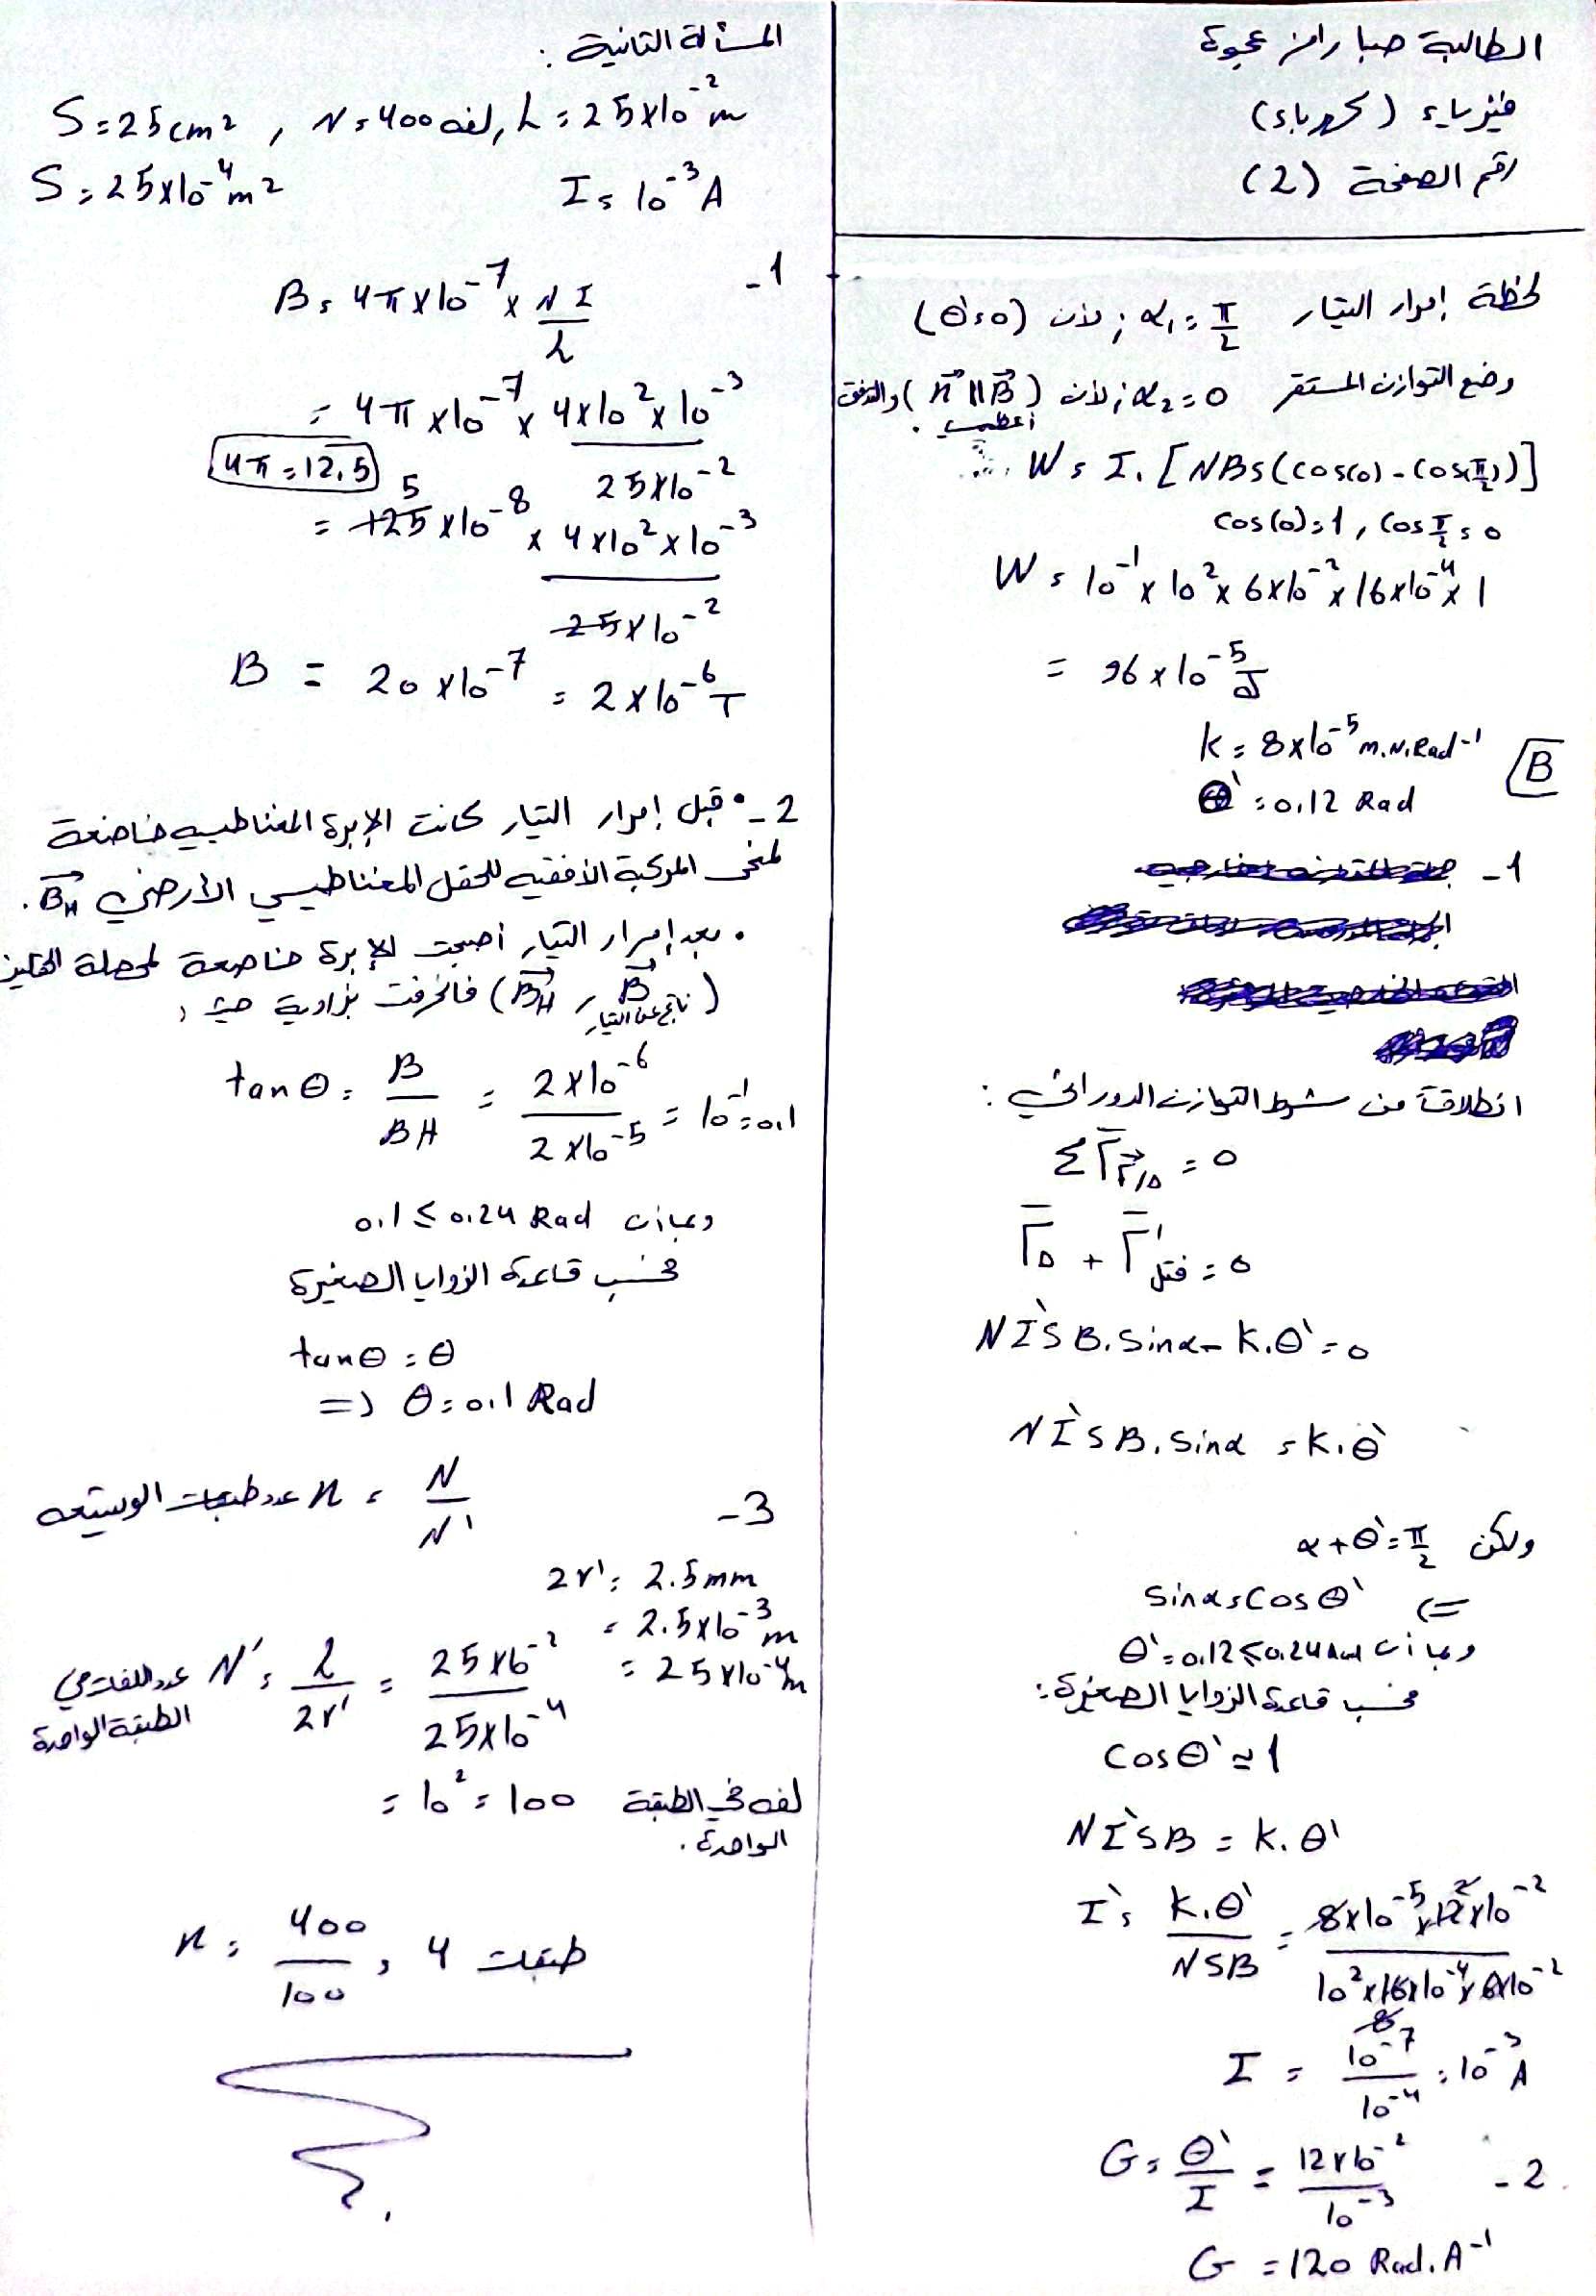 الطالبة صبا رامز عجوة
فيزياء (كهرباء)
رقم الصفحة (2)
لحظة إمرار التيار α₁ = π/2 ; لأن (θ' = 0)
وضع التوازن المستقر α₂ = 0 ; لأن (n⃗ // B⃗) والتدفق أعظمي .
W = I . [NBs(cos(0) - cos(π/2))]
cos(0) = 1 , cos π/2 = 0
W = 10⁻¹ × 10² × 6×10⁻² × 16×10⁻⁴ × 1
= 96 × 10⁻⁵ J
k = 8×10⁻⁵ m.N.Rad⁻¹
B
θ' = 0.12 Rad
1 -
انطلاقاً من شرط التوازن الدوراني :
Σ Γ̅ F⃗/Δ = 0
Γ̅Δ + Γ̅' فتل = 0
N I' S B . Sinα - K.θ' = 0
N I' S B . Sinα = K.θ'
ولكن α + θ' = π/2
Sinα = Cos θ' ⇐
وبما أن θ' = 0.12 ≤ 0.24 Rad
فحسب قاعدة الزوايا الصغيرة :
Cos θ' ≃ 1
N I' S B = K. θ'
I' = K.θ' / NSB = 8×10⁻⁵ × 12×10⁻² / 10² × 16×10⁻⁴ × 6×10⁻²
I = 10⁻⁷ / 10⁻⁴ = 10⁻³ A
2 - G = θ' / I = 12×10⁻² / 10⁻³
G = 120 Rad.A⁻¹
المسألة الثانية :
S = 25 cm² , N = 400 لفة , L = 25×10⁻² m
S = 25×10⁻⁴ m² I = 10⁻³ A
1 - B = 4π × 10⁻⁷ × N I / L
= 4π × 10⁻⁷ × 4×10² × 10⁻³ / 25×10⁻²
4π = 12.5
= 125 5 × 10⁻⁸ × 4×10² × 10⁻³ / 25×10⁻²
B = 20×10⁻⁷ = 2×10⁻⁶ T
2 - • قبل إمرار التيار كانت الإبرة المغناطيسية خاضعة
لمنحى المركبة الأفقية للحقل المغناطيسي الأرضي B⃗H .
• بعد إمرار التيار أصبحت الإبرة خاضعة لمحصلة الحقلين
(B⃗H , B⃗ ناتج عن التيار) فانحرفت بزاوية حيث :
tan θ = B / BH = 2×10⁻⁶ / 2×10⁻⁵ = 10⁻¹ = 0.1
وبما أن 0.1 ≤ 0.24 Rad
فحسب قاعدة الزوايا الصغيرة
tan θ = θ
=> θ = 0.1 Rad
3 - n عدد طبقات الوشيعة = N / N'
2r' = 2.5 mm
= 2.5×10⁻³ m
= 25×10⁻⁴ m
عدد اللفات في الطبقة الواحدة N' = L / 2r' = 25×10⁻² / 25×10⁻⁴
= 10² = 100 لفة في الطبقة
الواحدة .
n = 400 / 100 = 4 طبقات